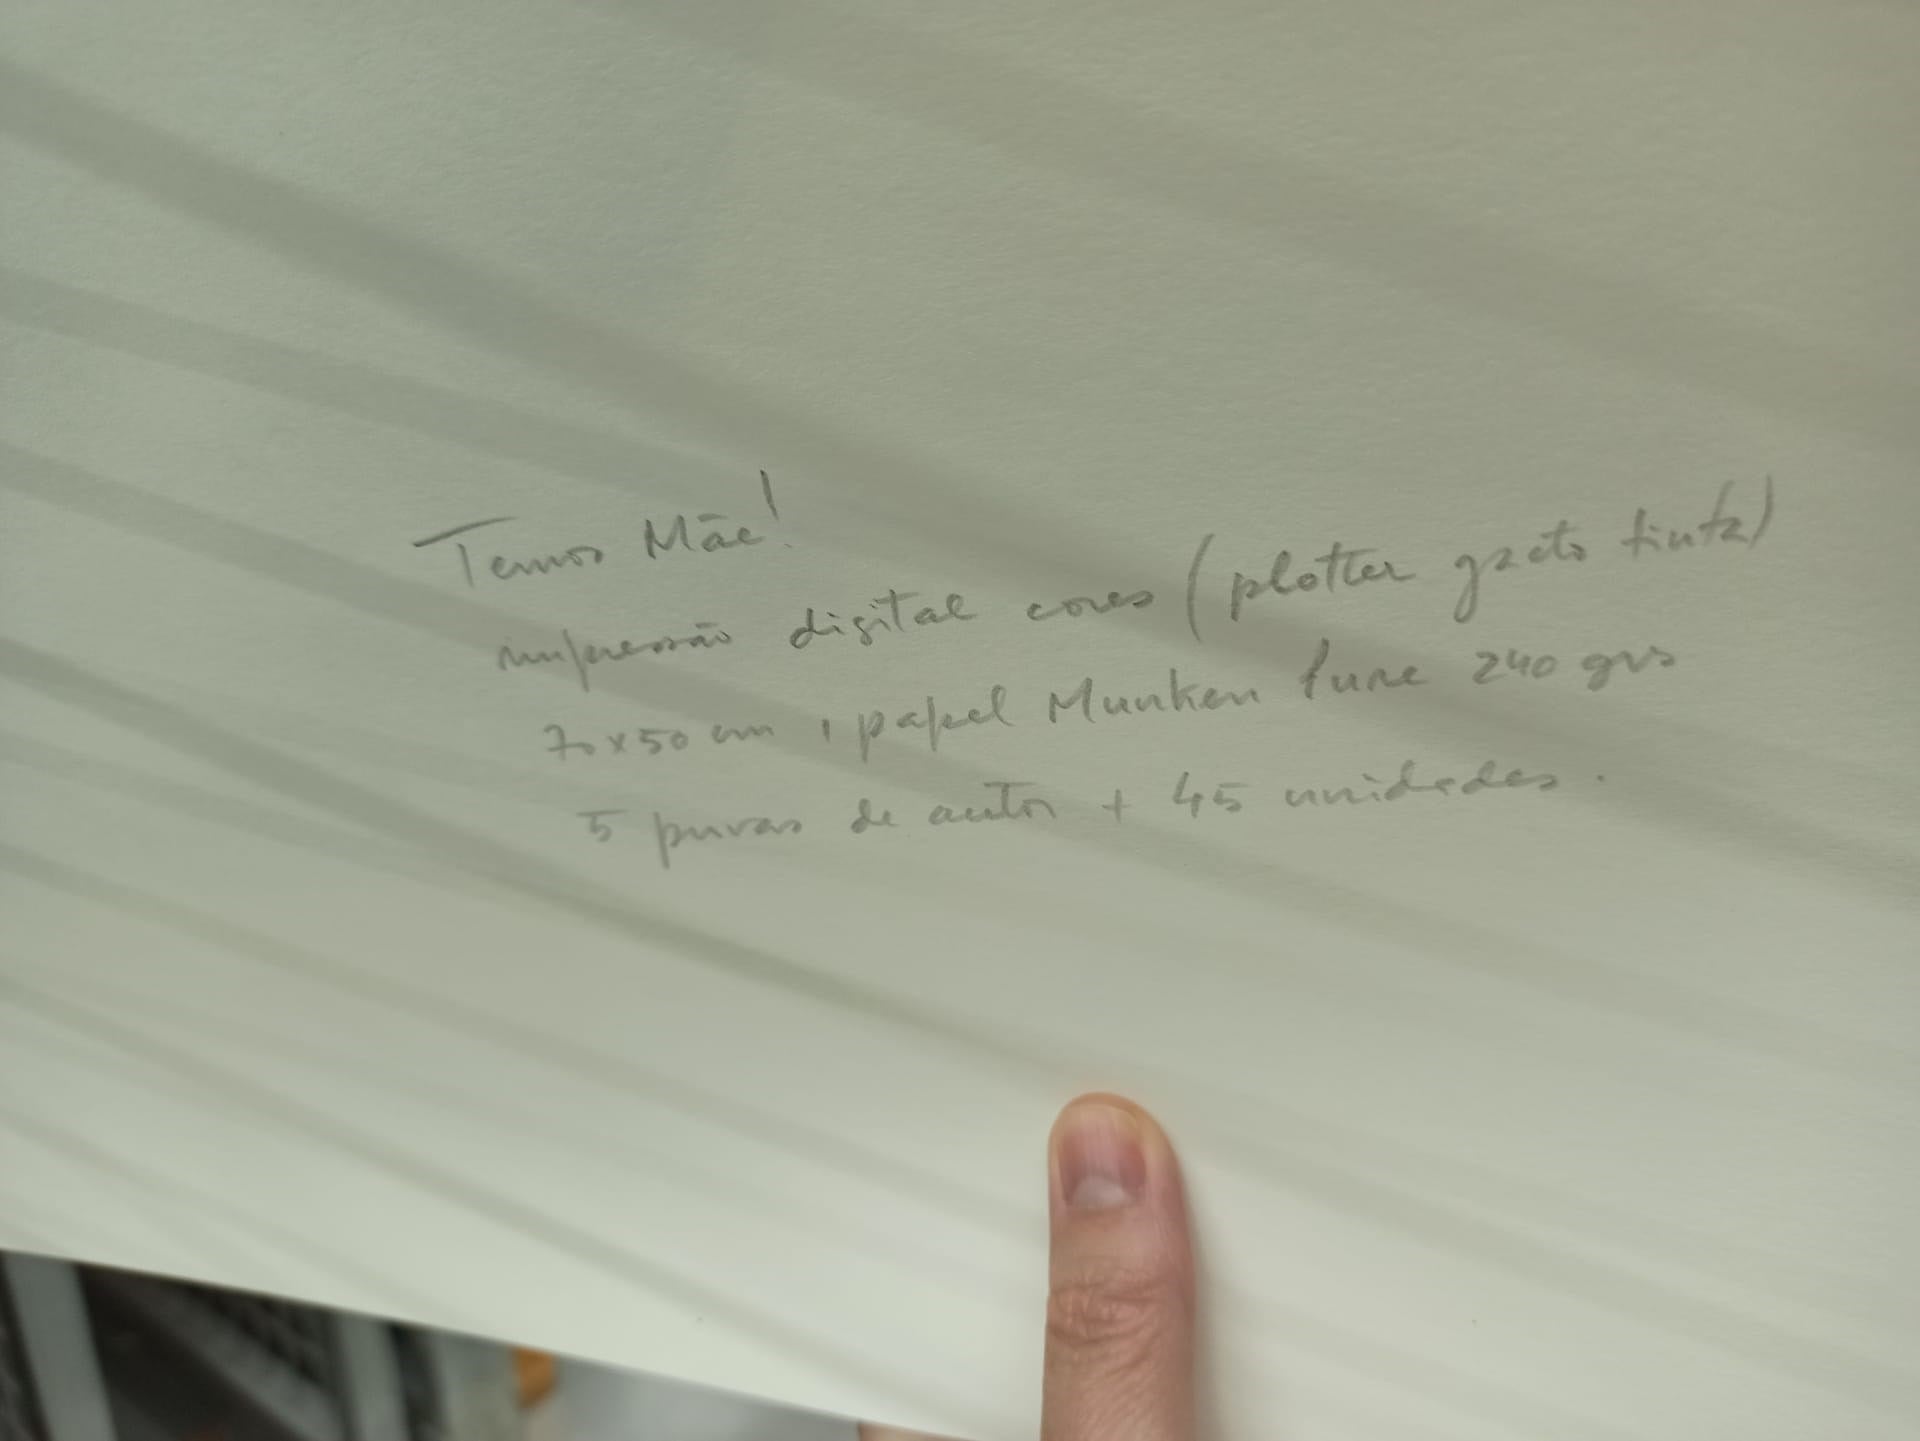 Temos Mãe!
impressão digital cores (plotter jacto tinta)
70x50 cm, papel Munken Pure 240 grs
5 provas de autor + 45 unidades.